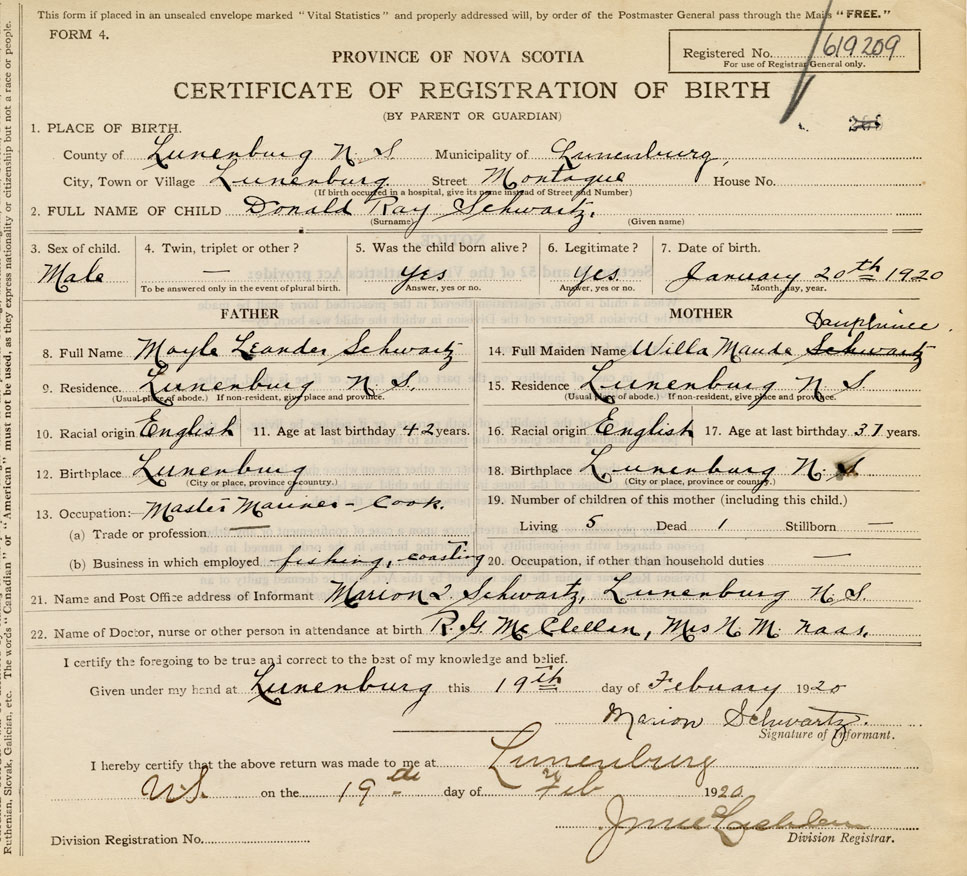 This form if placed in an unsealed envelope marked "Vital Statistics" and properly addressed will, by order of the Postmaster General pass through the Mails "FREE."
FORM 4.
Registered No. 619209
For use of Registrar General only.
PROVINCE OF NOVA SCOTIA
CERTIFICATE OF REGISTRATION OF BIRTH
(BY PARENT OR GUARDIAN)
1. PLACE OF BIRTH.
County of Lunenburg N. S. Municipality of Lunenburg,
City, Town or Village Lunenburg. Street Montague House No.
(If birth occured in a hospital, give its name instead of Street and Number)
2. FULL NAME OF CHILD Donald Ray Schwartz.
(Surname) (Given name)
3. Sex of child. 4. Twin, triplet or other? 5. Was the child born alive? 6. Legitimate? 7. Date of birth.
Male — Yes Yes. January 20th 1920
To be answered only in the event of plural birth. Answer, yes or no. Answer, yes or no. Month, day, year.
FATHER MOTHER
Dauphinee.
8. Full Name Moyle Leander Schwartz 14. Full Maiden Name Willa Maude Schwartz
9. Residence. Lunenburg N. S. 15. Residence Lunenburg N S
(Usual place of abode.) If non-resident, give place and province. (Usual place of abode.) If non-resident, give place and province.
10. Racial origin English 11. Age at last birthday 42 years. 16. Racial origin English 17. Age at last birthday 37 years.
12. Birthplace Lunenburg 18. Birthplace Lunenburg N. S
(City or place, province or country.) (City or place, province or country.)
13. Occupation:— Master Mariner - Cook. 19. Number of children of this mother (including this child.)
(a) Trade or profession — Living 5 Dead 1 Stillborn —
(b) Business in which employed fishing, coasting 20. Occupation, if other than household duties —
21. Name and Post Office address of Informant Marion L. Schwartz, Lunenburg N. S.
22. Name of Doctor, nurse or other person in attendance at birth R. G. McClellan, Mrs N. M. Naas.
I certify the foregoing to be true and correct to the best of my knowledge and belief.
Given under my hand at Lunenburg this 19th day of Febuary 1920
Marion Schwartz.
Signature of Informant.
I hereby certify that the above return was made to me at Lunenburg
N.S. on the 19th day of Feby 1920
Division Registration No. Division Registrar.
Ruthenian, Slovak, Galician, etc. The words "Canadian" or "American" must not be used, as they express nationality or citizenship but not a race or people.